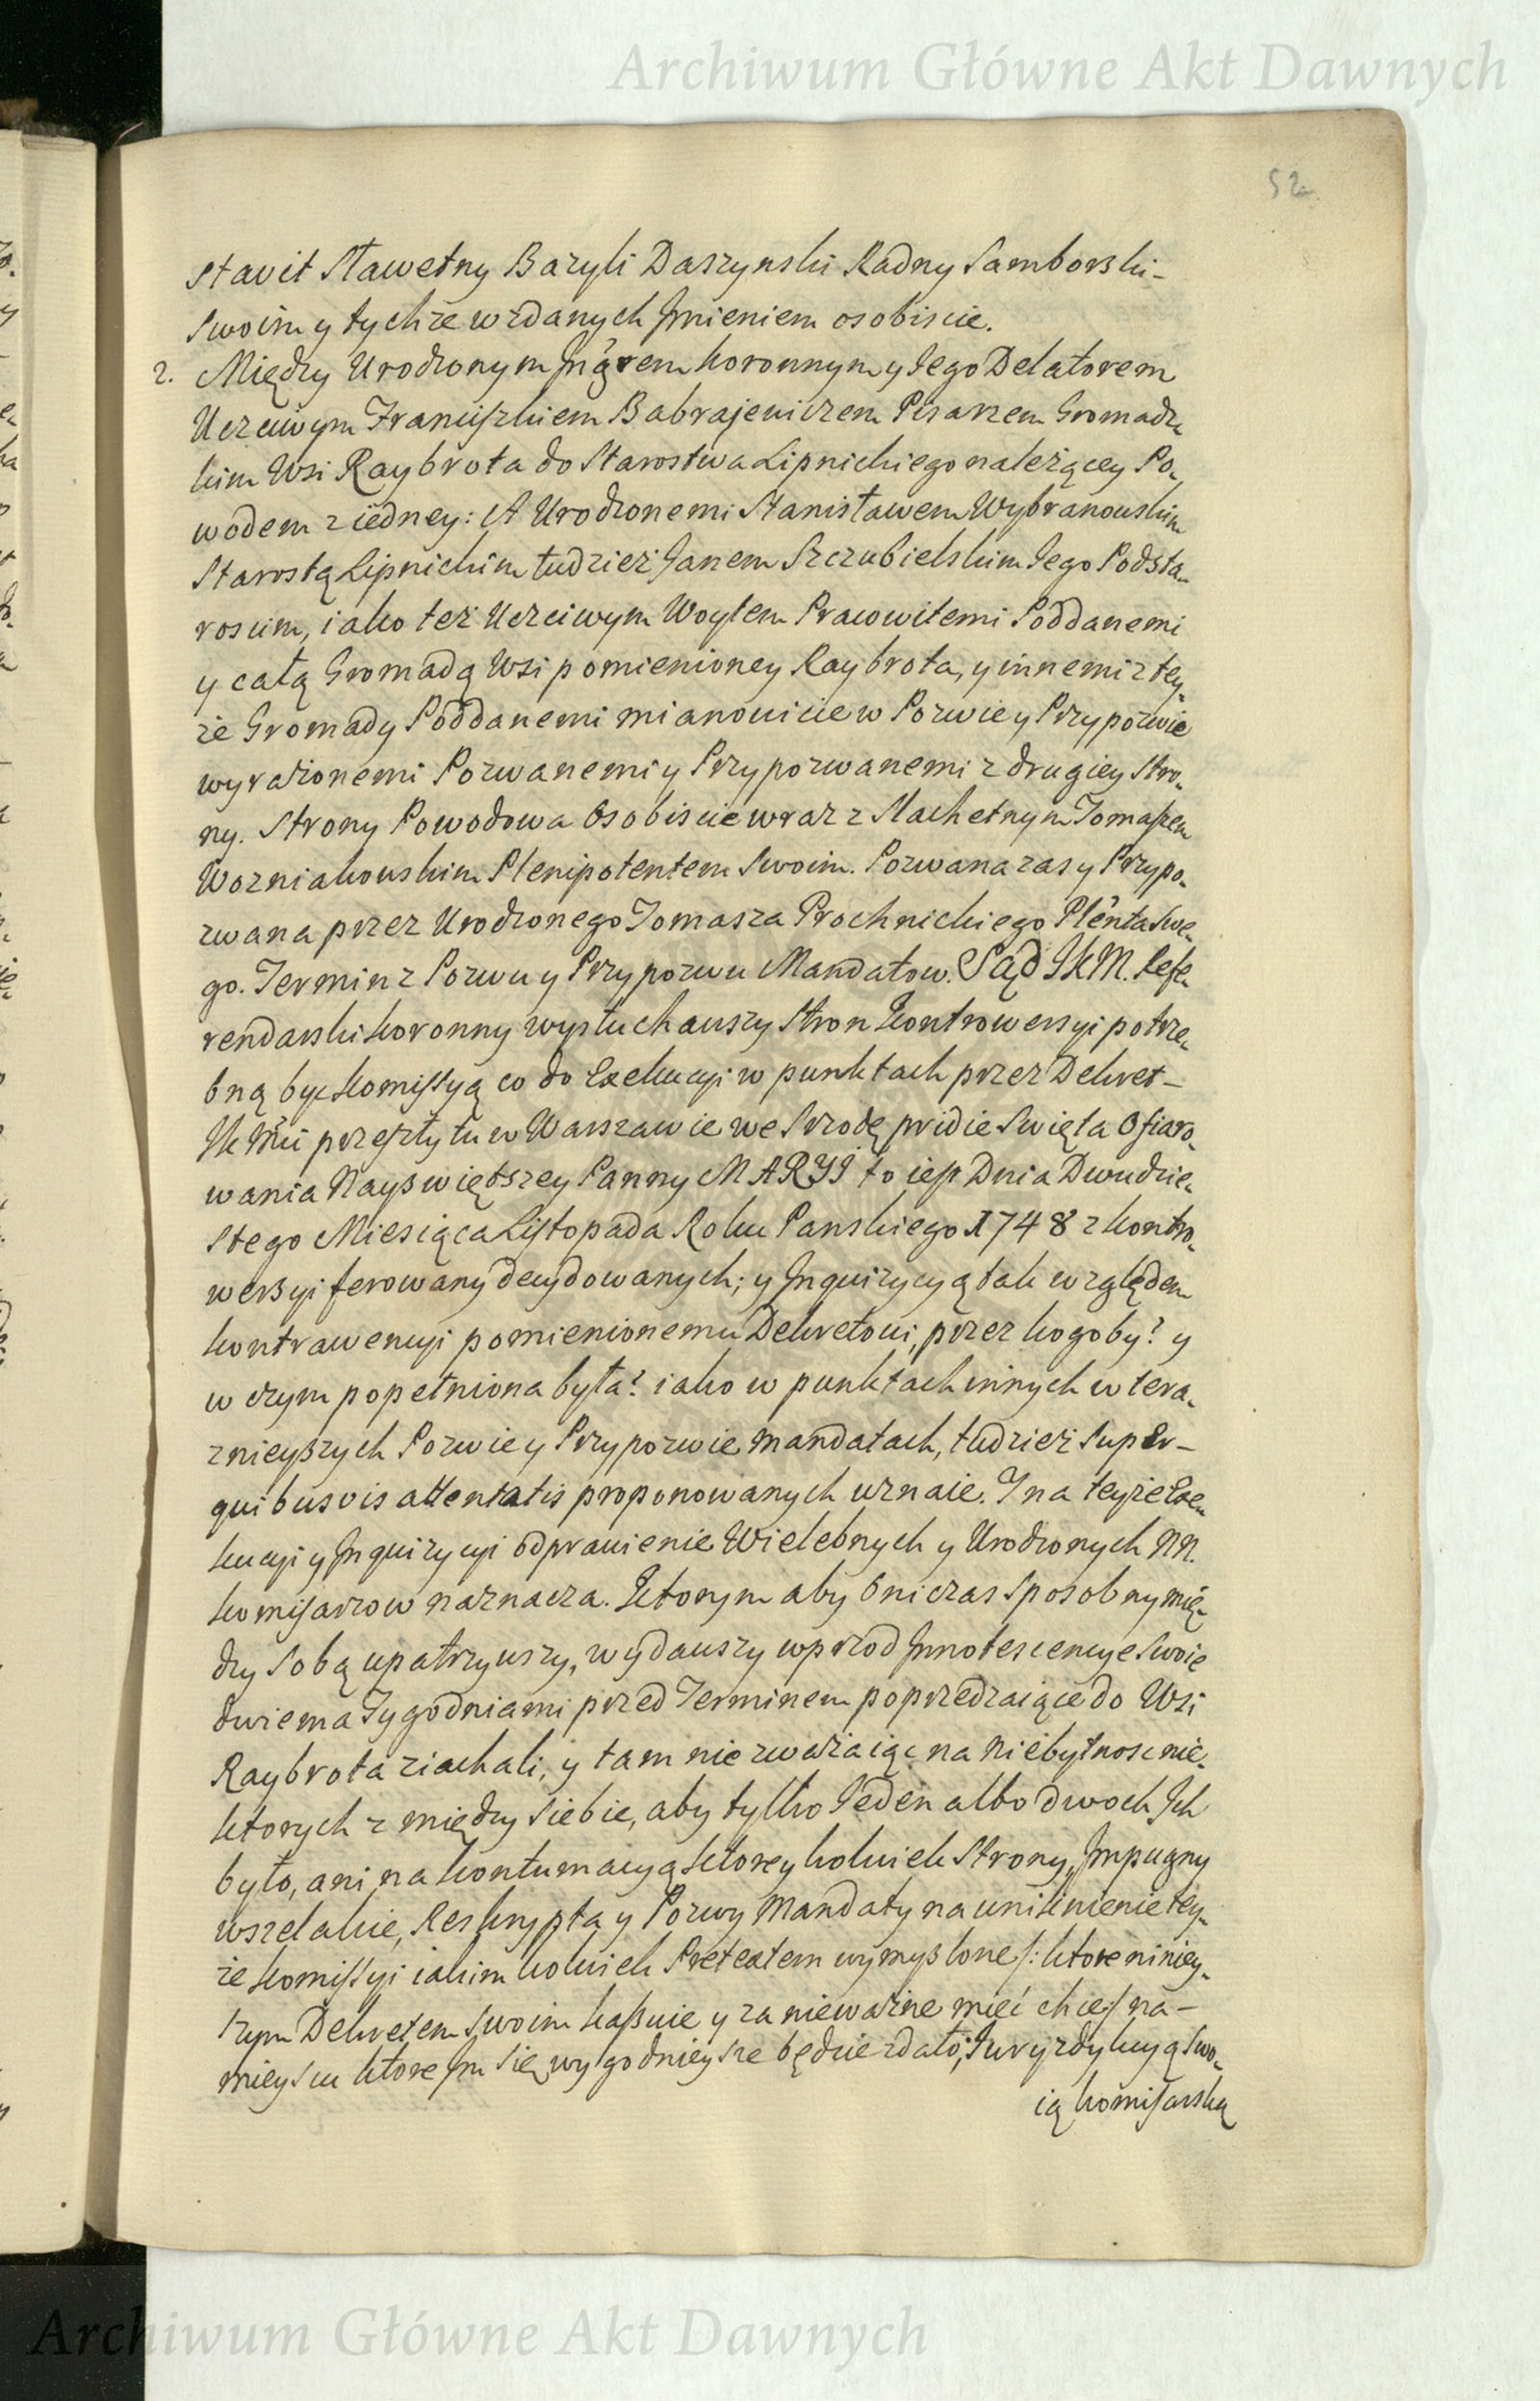 Archiwum Główne Akt Dawnych
52
Stavit Sławetny Bazyli Daszynski Radny Samborski
Swoim y tychże wzdanych Jmieniem osobiscie.
2. Między Urodzonym Jn̄grem koronnym y Jego Delatorem
Uczciwym Franciszkiem Babrajewiczem Pisarzem Gromadz-
kim Wsi Raybrota do Starostwa Lipnickiego należącey Po-
wodem z iedney: A Urodzonemi Stanisławem Wybranowskim
Starostą Lipnickim tudzież Janem Szczubielskim Jego Podsta-
roscim, iako też Uczciwym Woytem Pracowitemi Poddanemi
y całą Gromadą Wsi pomienioney Raybrota, y innemi z tey-
że Gromady Poddanemi mianowicie w Pozwie y Przypozwie
wyrażonemi Pozwanemi y Przypozwanemi z drugiey stro-
ny. Strony Powodowa Osobiscie wraz z Slachetnym Tomaszem
Wozniakowskim Plenipotentem Swoim. Pozwana zas y Przypo-
zwana przez Urodzonego Tomasza Prochnickiego Plēnta Swe-
go. Termin z Pozwu y Przypozwu Mandatow. Sąd JKM. Refe-
rendarski koronny wysłuchawszy Stron Kontrowersyi potrze-
bną byc komissyą co do Exekucyi w punktach przez Dekret
przeszły tu w Warszawie we Srzodę pridie Swięta Ofiaro-
wania Nayswiętszey Panny MARYI to iest Dnia Dwudzie-
stego Miesiąca Listopada Roku Panskiego 1748 z kontro-
wersyi ferowany decydowanych; y Jnquizycyą tak względem
kontrawencyi pomienionemu Dekretowi, przez kogoby? y
w czym popełniona była? iako w punktach innych w tera-
znieyszych Pozwie y Przypozwie mandatach, tudzież Super
quibusvis attentatis proponowanych uznaie. J na teyże Exe-
kucyi y Jnquizycyi odprawienie Wielebnych y Urodzonych NN.
komisarzow naznacza. Ktorym aby Oni czas sposobny mię-
dzy Sobą upatrzywszy, wydawszy wprzod Jnnotescencye Swoie
dwiema Tygodniami przed Terminem poprzedzaiące do Wsi
Raybrota ziachali, y tam nie zważaiąc na niebytnosc nie-
ktorych z między Siebie, aby tylko Jeden albo dwoch Jch
było, ani na kontumacyą ktorey kolwiek Strony, Jmpugny
wszelakie, Reskrypta y Pozwy Mandaty na uniknienie tey-
że komissyi iakim kolwiek Pretextem wymyslone /: ktore niniey-
szym Dekretem Swoim kassuie y za nieważne mieć chce / na
mieyscu ktore Jm się wygodnieysze będzie zdało, Juryzdykcyą Swo-
ią komisarską
Archiwum Główne Akt Dawnych